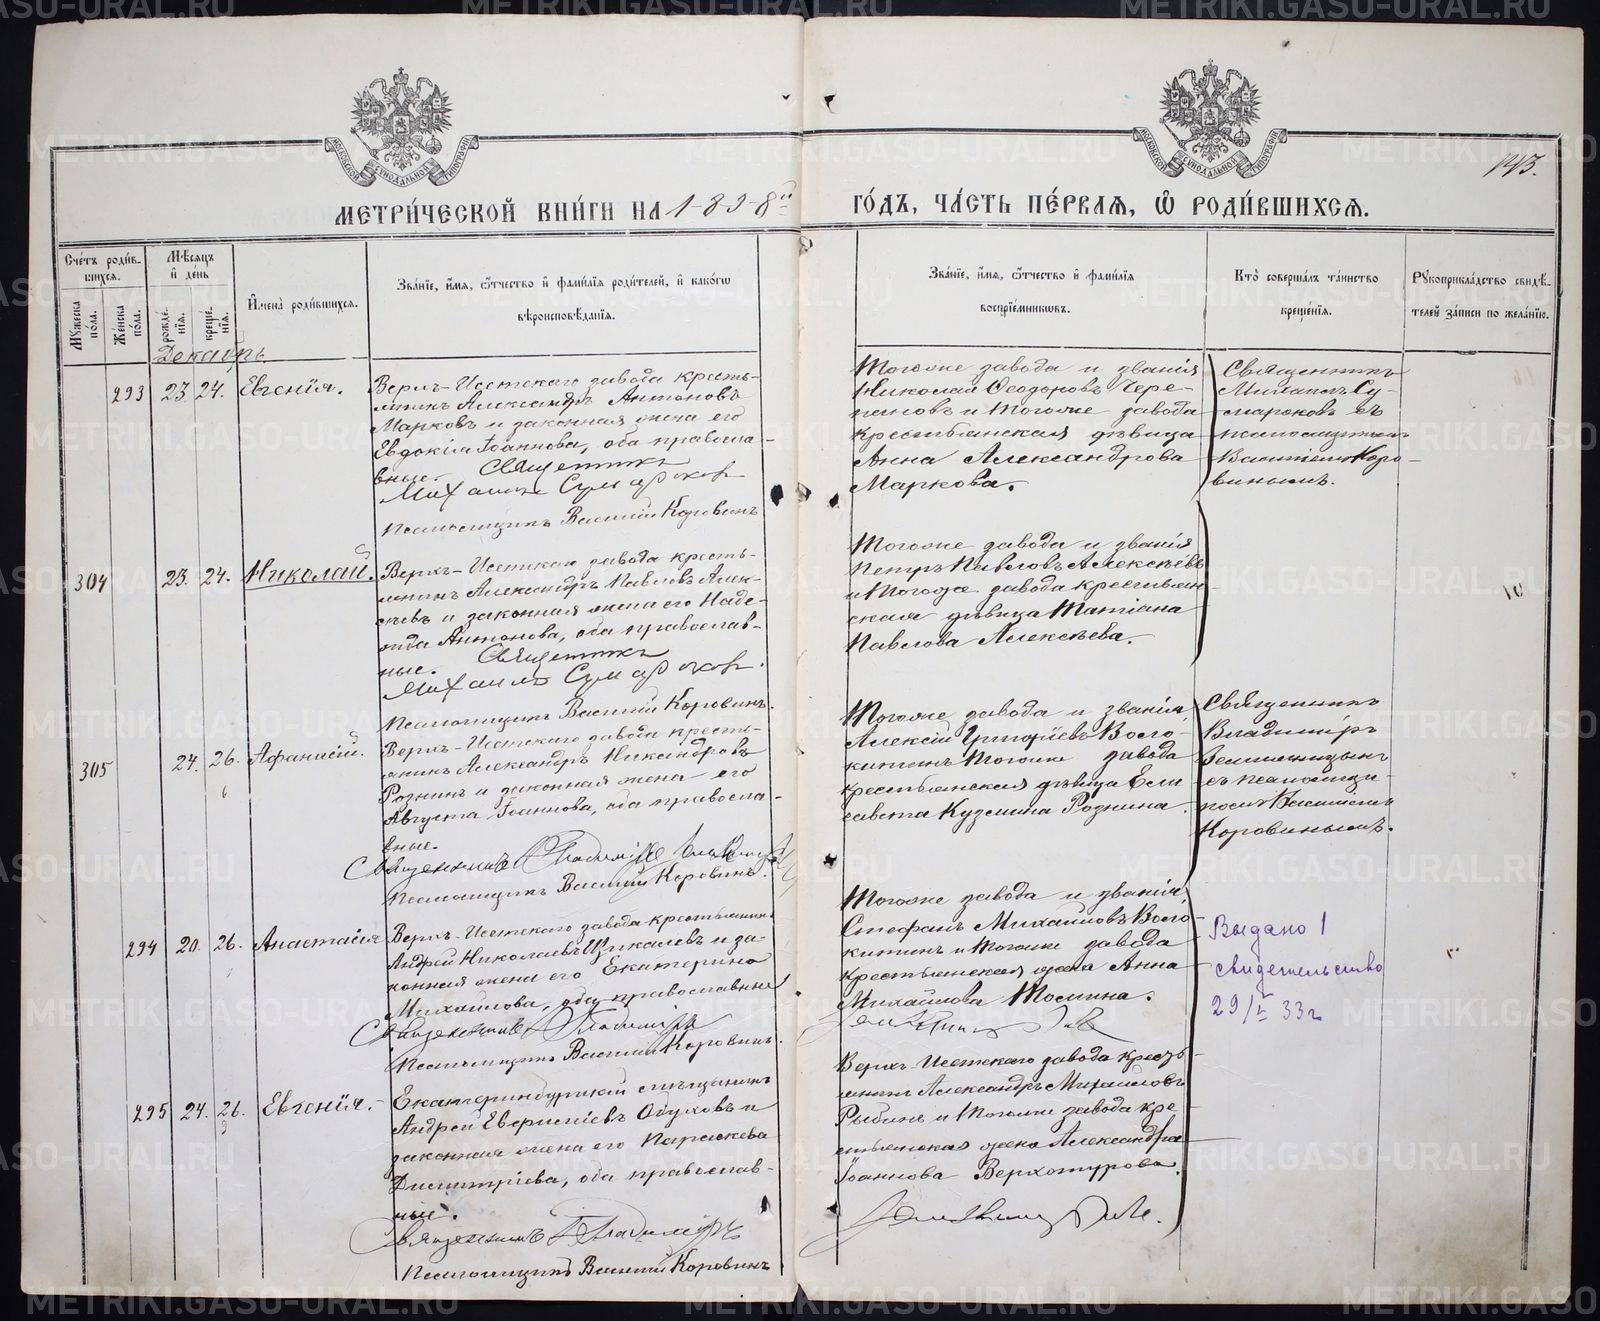 143.
МОСКОВСКОЙ СѴНОДАЛЬНОЙ ТИПОГРАФІИ
МОСКОВСКОЙ СѴНОДАЛЬНОЙ ТИПОГРАФІИ
МЕТРИ́ЧЕСКОЙ КНИ́ГИ НА 1898й ГО́ДЪ, ЧА́СТЬ ПЕ́РВАЯ, Ѡ РОДИ́ВШИХСЯ.
Сче́тъ роди́в-
шихся.
Мѣ́сяцъ
и҆ де́нь
Мꙋжеска
по́ла.
Же́нска
по́ла.
рожде́-
нїя.
креще́-
нїя.
И҆мена̀ роди́вшихся.
Зва́нїе, и҆́мя, ѻ҆́тчество и҆ фами́лїя роди́телей, и҆ како́гѡ
вѣроисповѣ́данїя.
Зва́нїе, и҆́мя, ѻ҆́тчество и҆ фами́лїя
воспрїе́мникѡвъ.
Кто̀ соверша́лъ та́инство
креще́нїя.
Рꙋкоприкла́дство свидѣ́-
телей за́писи по жела́нїю.
Декабрь
293 23. 24. Евгенія.
Верхъ-Исетскаго завода кресть-
янинъ Александръ Антоновъ
Марковъ и законная жена его
Евдокія Іоаннова, оба правосла-
вные. Священникъ
Михаилъ Сумароков
Псаломщикъ Василій Коровинъ
Тогоже завода и званія
Николай Ѳеодоровъ Чере-
пановъ и тогоже завода
крестьянская дѣвица
Анна Александрова
Маркова.
Священникъ
Михаилъ Су-
мароковъ съ
псаломщикомъ
Василіемъ Коро-
винымъ.
304 23. 24. Николай.
Верхъ-Исетскаго завода кресть-
янинъ Александръ Павловъ Алек-
сѣевъ и законная жена его Наде-
жда Антонова, оба православ-
ные. Священникъ
Михаилъ Сумароков.
Псаломщикъ Василій Коровинъ.
Тогоже завода и званія
Петръ Павловъ Алексѣевъ
и тогоже завода крестьян-
ская дѣвица Татіана
Павлова Алексѣева.
305 24. 26. Афанасій.
Верхъ-Исетскаго завода кресть-
янинъ Александръ Никандровъ
Рознинъ и законная жена его
Августа Іоаннова, оба правосла-
вные.
Священникъ Владиміръ
Псаломщикъ Василій Коровинъ.
Тогоже завода и званія,
Алексій Григоріевъ Воло-
китинъ тогоже завода
крестьянская дѣвица Ели
савета Кузмина Рознина.
Священникъ
Владиміръ
съ псаломщи-
комъ Василіемъ
Коровинымъ.
294 20. 26. Анастасія
Верхъ-Исетскаго завода крестьянинъ
Андрей Николаевъ и за-
конная жена его Екатерина
Михайлова, оба православные
Священникъ Владиміръ
Псаломщикъ Василій Коровинъ.
Тогоже завода и званія,
Стефанъ Михайловъ Воло-
китинъ и тогоже завода
крестьянская жена Анна
Михайлова Томина.
Выдано 1
свидетельство
29/V 33г
295 24. 26. Евгенія.
Екатеринбургскій мѣщанинъ
Андрей Обуховъ и
законная жена его Параскева
Димитріева, оба православ-
ные.
Священникъ Владиміръ
Псаломщикъ Василій Коровинъ
Верхъ-Исетскаго завода кресть-
янинъ Александръ Михайловъ
Рыбинъ и тогоже завода кре-
стьянская жена Александра
Іоаннова Верхотурова.
METRIKI.GASO-URAL.RU